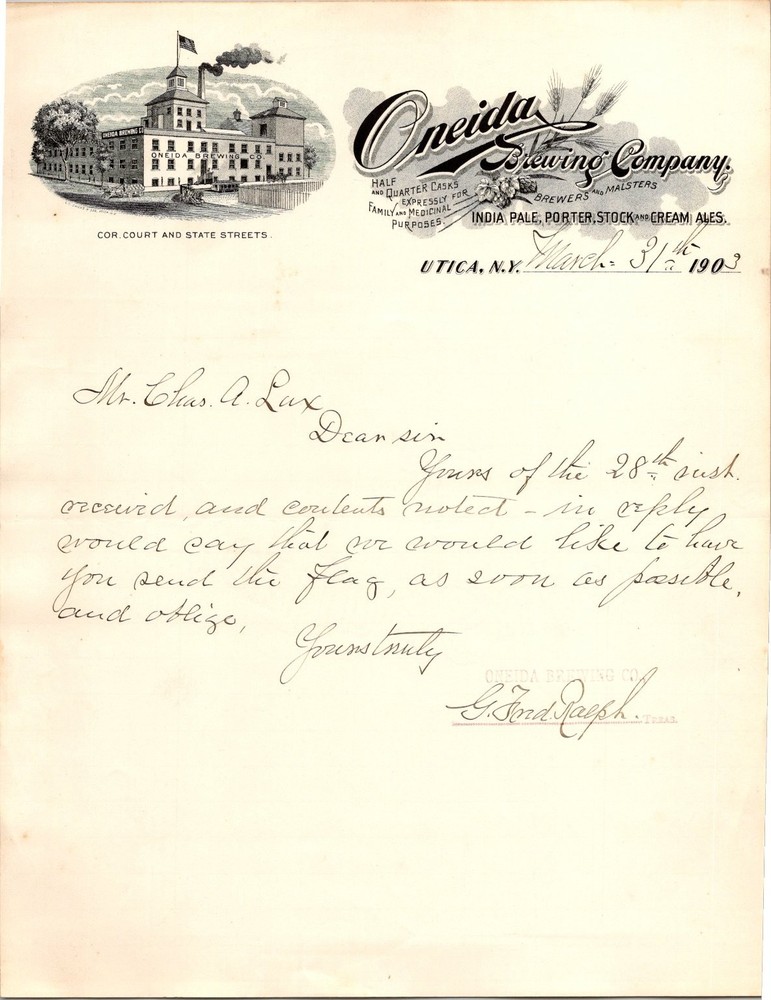 ONEIDA BREWING CO.
ONEIDA BREWING CO.
COR. COURT AND STATE STREETS.
Oneida
Brewing Company,
HALF
AND QUARTER CASKS
EXPRESSLY FOR
FAMILY AND MEDICINAL
PURPOSES.
BREWERS AND MALSTERS
INDIA PALE, PORTER, STOCK AND CREAM ALES.
UTICA, N.Y. March 31th 1903
Mr. Chas. A. Lux
Dear sir
Yours of the 28th inst.
received, and contents noted - in reply
would say that we would like to have
you send the flag, as soon as possible,
and oblige,
Yours truly
ONEIDA BREWING CO.
G. Fred. Ralph. TREAS.